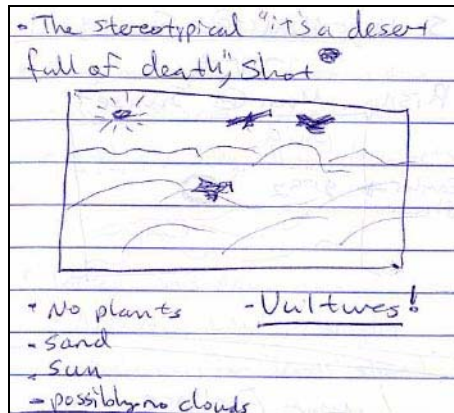 • The stereotypical "it's a desert
full of death", shot
• No plants - Vultures!
- sand
- sun
- possibly no clouds